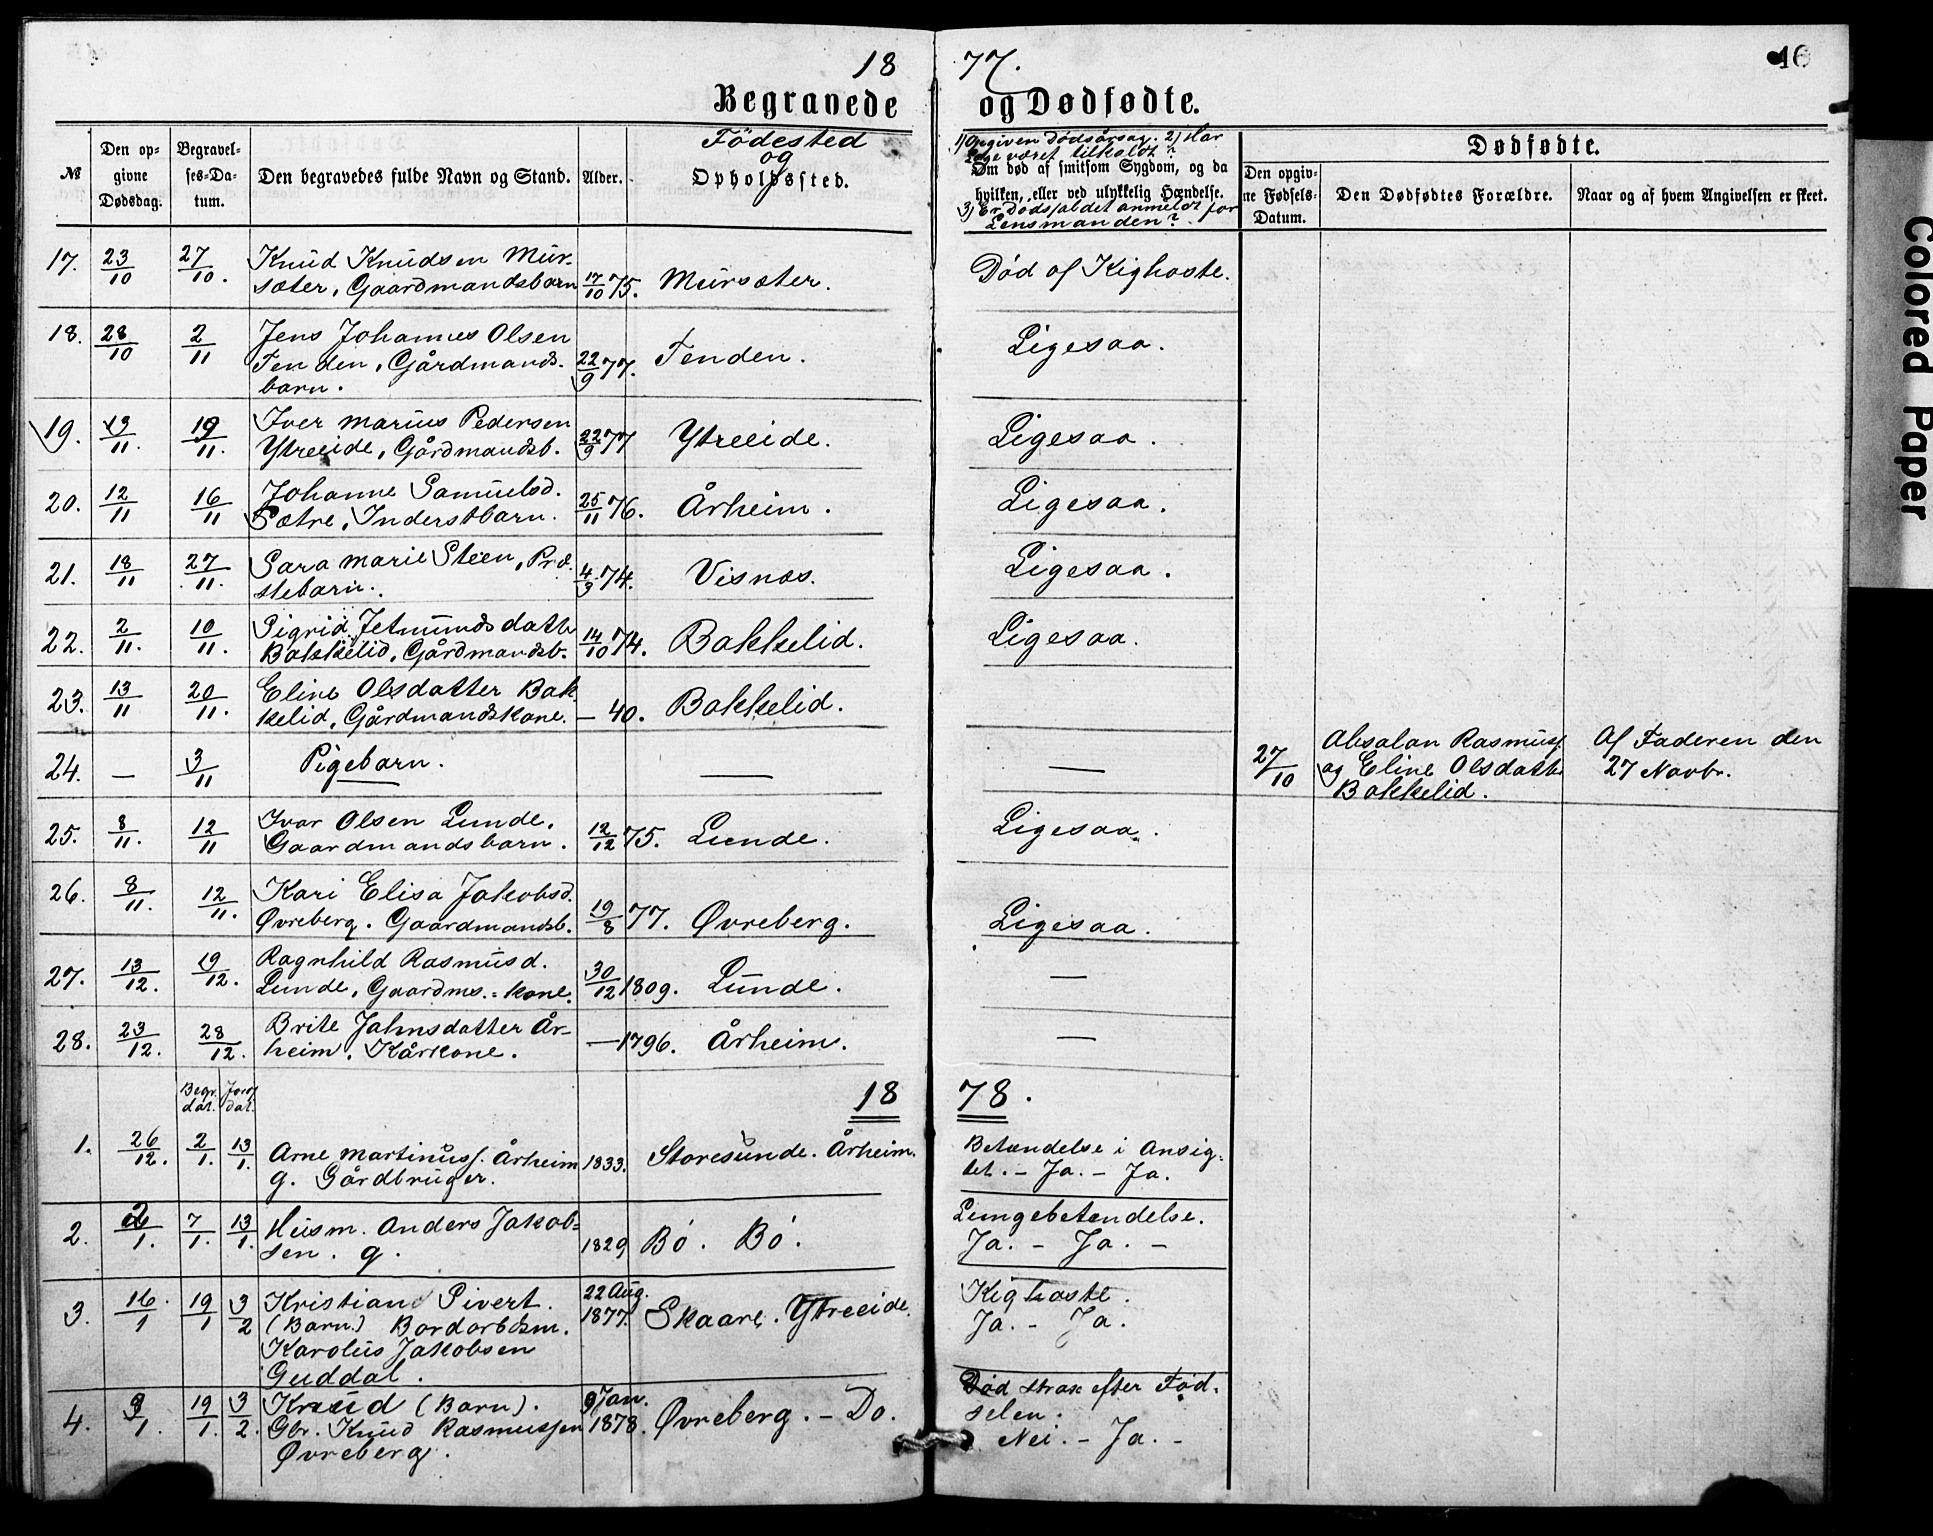 18 77.
46
Begravede og Dødfødte.
№
Den opgivne Dødsdag.
Begravelses-Datum.
Den begravedes fulde Navn og Stand.
Alder.
Fødested
og
Opholdssted.
1) Opgiven Dødsårsag. 2) Har
Læge været tilkaldt?
Om død af smitsom Sygdom, og da
hvilken, eller ved ulykkelig Hændelse.
3) Er Dødsfaldet anmeldt for
Lensmanden?
Dødfødte.
Den opgivne Fødsels-Datum.
Den Dødfødtes Forældre.
Naar og af hvem Angivelsen er skeet.
17. 23/10 27/10. Knud Knudsen Mur-
sæter, Gaardmandsbarn 17/10 75. Mursæter. Død af Kighoste.
18. 28/10 2/11 Jens Johannes Olsen
Tenden, Gårdmands-
barn. 22/9 77. Tenden. Ligesaa.
19. 13/11. 19/11. Iver Marius Pedersen
Ytreeide, Gårdmandsb. 22/9 77 Ytreeide. Ligesaa.
20. 12/11 16/11 Johanne Samuelsd.
Sætre, Inderstbarn. 25/11 76. Årheim. Ligesaa.
21. 18/11 27/11. Sara Marie Steen, Præ-
stebarn. 4/3 74. Visnæs. Ligesaa.
22. 2/11. 10/11. Sigrid Jetmundsdatter
Bakkelid, Gårdmandsb. 14/10 74. Bakkelid. Ligesaa.
23. 13/11 20/11. Eline Olsdatter Bak-
kelid, Gårdmandskone. — 40. Bakkelid.
24. — 3/11 Pigebarn. — — 27/10 Absalon Rasmuss. Af Faderen den
og Eline Olsdatter 27 Novbr.
Bakkelid.
25. 8/11. 12/11 Ivar Olsen Lunde,
Gaardmandsbarn. 12/12 75. Lunde. Ligesaa.
26. 8/11. 12/11. Kari Elisa Jakobsd.
Øvreberg. Gaardmandsb. 19/8 77. Øvreberg. Ligesaa.
27. 13/12. 19/12. Ragnhild Rasmusd.
Lunde, Gaardms.=kone. 30/12 1809. Lunde. —
28. 23/12. 28/12. Brite Jahnsdatter År-
heim, Kårkone. — 1796. Årheim. —
Begr. dat. Jordf. dat.
18 78.
1. 26/12. 2/1. 13/1. Arne Martinuss. Årheim 1833. Storesunde. Årheim. Betændelse i Ansig-
g. Gårdbruger. tet. - Ja. - Ja.
2. 2/1. 7/1. 13/1. Husm. Anders Jakob-
sen. g. 1829 Bö. Bö. Lungebetændelse.
Ja. - Ja. -
3. 16/1 19/1 3/2 Kristian Sivert. 22 Aug. Kighoste.
(Barn.) Bordarb.sm. 1877. Skaare. Ytreeide. Ja. - Ja.
Karolus Jakobsen
Guddal.
4. 9/1. 19/1. 3/2. Knud (Barn). 9 Jan. Død strax efter Fød-
Gbr. Knud Rasmussen 1878. Øvreberg. - Do. selen.
Øvreberg. Nei. - Ja. -
Colored Paper